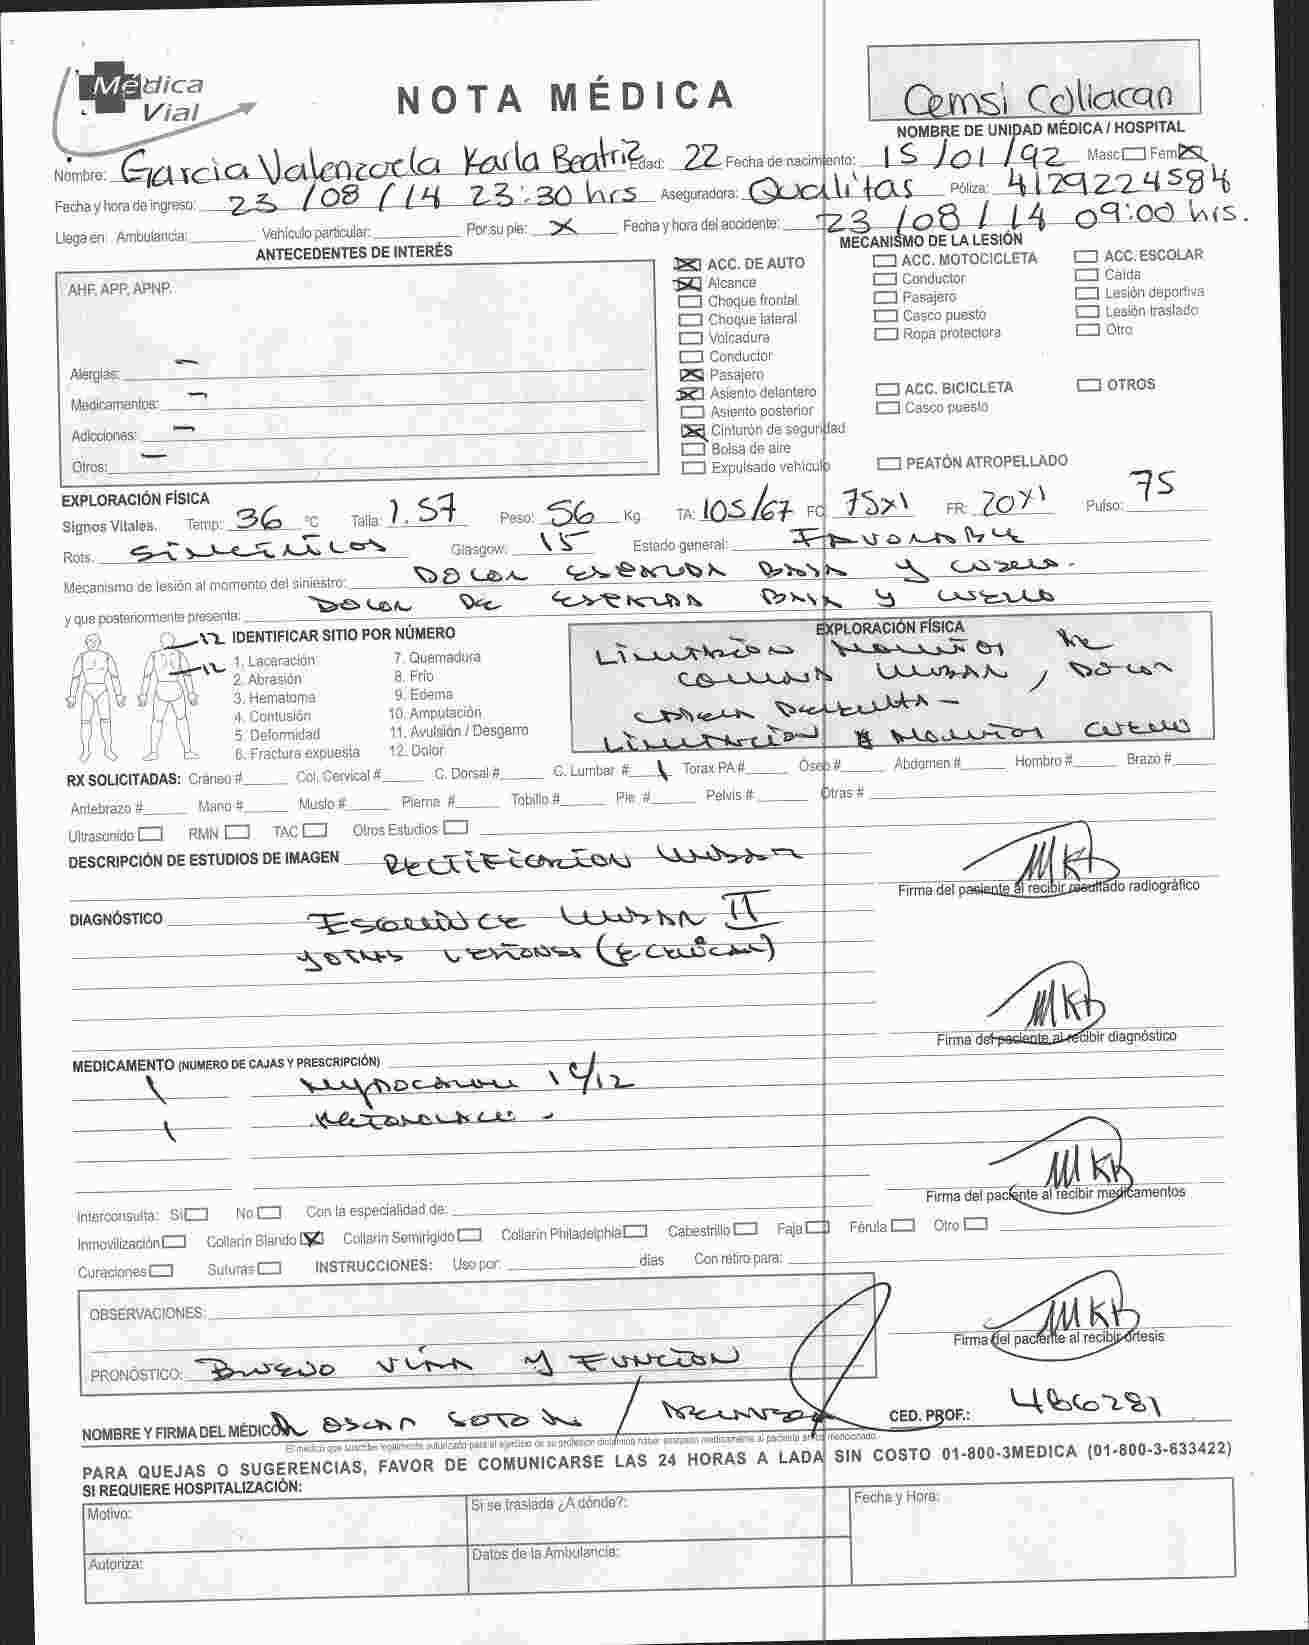 Médica Vial
NOTA MÉDICA
Cemsi Culiacan
NOMBRE DE UNIDAD MÉDICA / HOSPITAL
Nombre: Garcia Valenzuela Karla Beatriz Edad: 22 Fecha de nacimiento: 15/01/92 Masc Fem X
Fecha y hora de ingreso: 23/08/14 23:30 hrs Aseguradora: Qualitas Póliza: 4129224584
Llega en: Ambulancia: Vehículo particular: Por su pie: X Fecha y hora del accidente: 23/08/14 09:00 hrs.
ANTECEDENTES DE INTERÉS
AHF, APP, APNP.
Alergias: —
Medicamentos: —
Adicciones: —
Otros: —
MECANISMO DE LA LESIÓN
X ACC. DE AUTO
X Alcance
Choque frontal
Choque lateral
Volcadura
Conductor
X Pasajero
X Asiento delantero
Asiento posterior
X Cinturón de seguridad
Bolsa de aire
Expulsado vehículo
ACC. MOTOCICLETA
Conductor
Pasajero
Casco puesto
Ropa protectora
ACC. BICICLETA
Casco puesto
PEATÓN ATROPELLADO
ACC. ESCOLAR
Caída
Lesión deportiva
Lesión traslado
Otro
OTROS
EXPLORACIÓN FÍSICA
Signos Vitales. Temp: 36 °C Talla: 1.57 Peso: 56 Kg TA: 105/67 FC 75x1 FR: 20x1 Pulso: 75
Rots. Simetricos Glasgow: 15 Estado general: Favorable
Mecanismo de lesión al momento del siniestro: Dolor espalda baja y cuello.
y que posteriormente presenta: Dolor de espalda baja y cuello
12
12
IDENTIFICAR SITIO POR NÚMERO
1. Laceración
2. Abrasión
3. Hematoma
4. Contusión
5. Deformidad
6. Fractura expuesta
7. Quemadura
8. Frío
9. Edema
10. Amputación
11. Avulsión / Desgarro
12. Dolor
EXPLORACIÓN FÍSICA
Limitación movtos de
columna lumbar, dolor
Limitación movtos cuello
RX SOLICITADAS: Cráneo # Col. Cervical # C. Dorsal # C. Lumbar # 1 Torax PA # Óseo # Abdomen # Hombro # Brazo #
Antebrazo # Mano # Muslo # Pierna # Tobillo # Pie # Pelvis # Otras #
Ultrasonido RMN TAC Otros Estudios
DESCRIPCIÓN DE ESTUDIOS DE IMAGEN Rectificacion lumbar
Firma del paciente al recibir resultado radiográfico
DIAGNÓSTICO Esguince lumbar II
y otras lesiones
Firma del paciente al recibir diagnóstico
MEDICAMENTO (NUMERO DE CAJAS Y PRESCRIPCIÓN)
1 1 c/12
1 Ketorolaco -
Firma del paciente al recibir medicamentos
Interconsulta: Sí No Con la especialidad de:
Inmovilización Collarín Blando X Collarín Semirígido Collarín Philadelphia Cabestrillo Faja Férula Otro
Curaciones Suturas INSTRUCCIONES: Uso por: días Con retiro para:
OBSERVACIONES:
Firma del paciente al recibir órtesis
PRONÓSTICO: Bueno vida y función
NOMBRE Y FIRMA DEL MÉDICO: Oscar Soto CED. PROF.: 4866281
El médico que suscribe legalmente autorizado para el ejercicio de su profesión dictamina haber atendido medicamente al paciente arriba mencionado.
PARA QUEJAS O SUGERENCIAS, FAVOR DE COMUNICARSE LAS 24 HORAS A LADA SIN COSTO 01-800-3MEDICA (01-800-3-633422)
SI REQUIERE HOSPITALIZACIÓN:
Motivo:
Si se traslada ¿A dónde?:
Fecha y Hora:
Autoriza:
Datos de la Ambulancia: